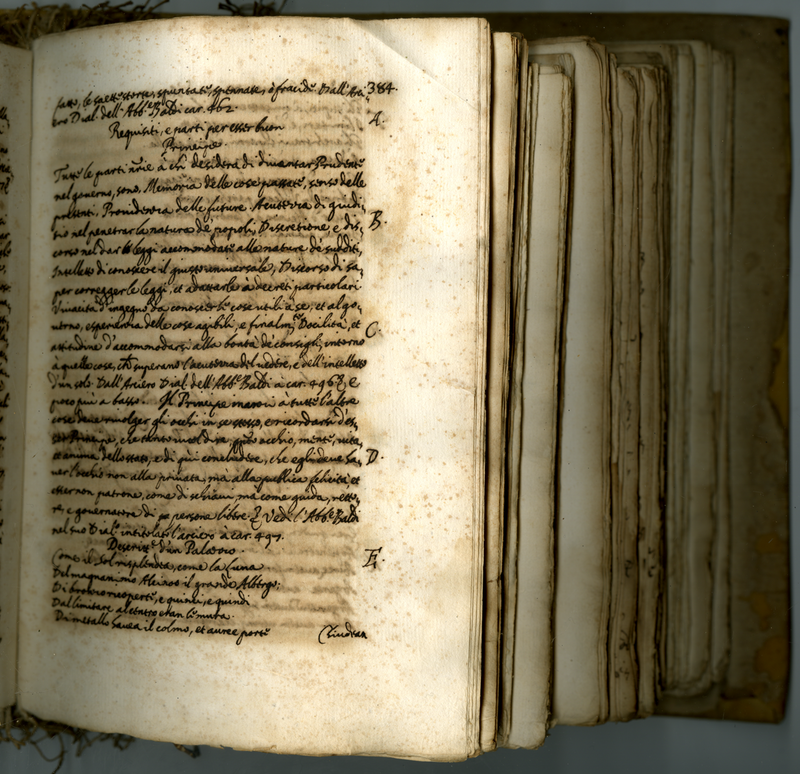 fatto, le saette storte, spuntate, spennate, ò fracide. Dall'Arci- 384.
ero Dial. dell'Abb.e Baldi car. 462.
A.
Requisiti, e parti per esser buon
Principe.
Tutte le parti à chi desidera di diventar Prudente
nel governo, sono, Memoria delle cose passate, senso delle
presenti. Providenza delle future. Acutezza di giudi-
tio nel penetrar la natura de' popoli, Discretione, e dis- B.
corso nel dar le leggi accommodate alle nature de' sudditi,
Intelletto di conoscere il giusto universale, Discorso di sa-
per corregger le leggi, et adattarle à decreti particolari
Vivacità d'ingegno da conoscer le cose utili à se, et al go-
verno, esperienza delle cose agibili, e finalm.te Docilità, et C.
attitudine d'accommodarsi alla bontà de' consigli, intorno
à quelle cose, che superano l'acutezza del vedere, e dell'intelletto
d'un solo. Dall'Arciero Dial. dell'Abb.e Baldi à car. 496. e
poco più a basso. Il Principe inanzi à tutte l'altre
cose deve rivolger gli occhi in se stesso, e ricordarsi d'es-
ser Principe, che tanto vuol dire, q.to occhio, mente, vita,
et anima dello stato, e di qui concludere, che egli deve ha- D.
ver l'occhio non alla privata, mà alla publica felicità et
esser non patrone, come di schiavi, ma come guida, retto-
re, e governatore di persone libere. Vedi l'Abb.e Baldi
nel suo Dial. intitolato l'arciero à car. 497.
Descritt.e d'un Palazzo. E.
Come il Sol risplendea, come la Luna
Del magnanimo Alcinoo il grande Albergo;
Di bronzo ricoperte, e quinci, e quindi
Dal limitare al tetto eran le mura.
Di metallo havea il colmo, et auree porte
Chiudean